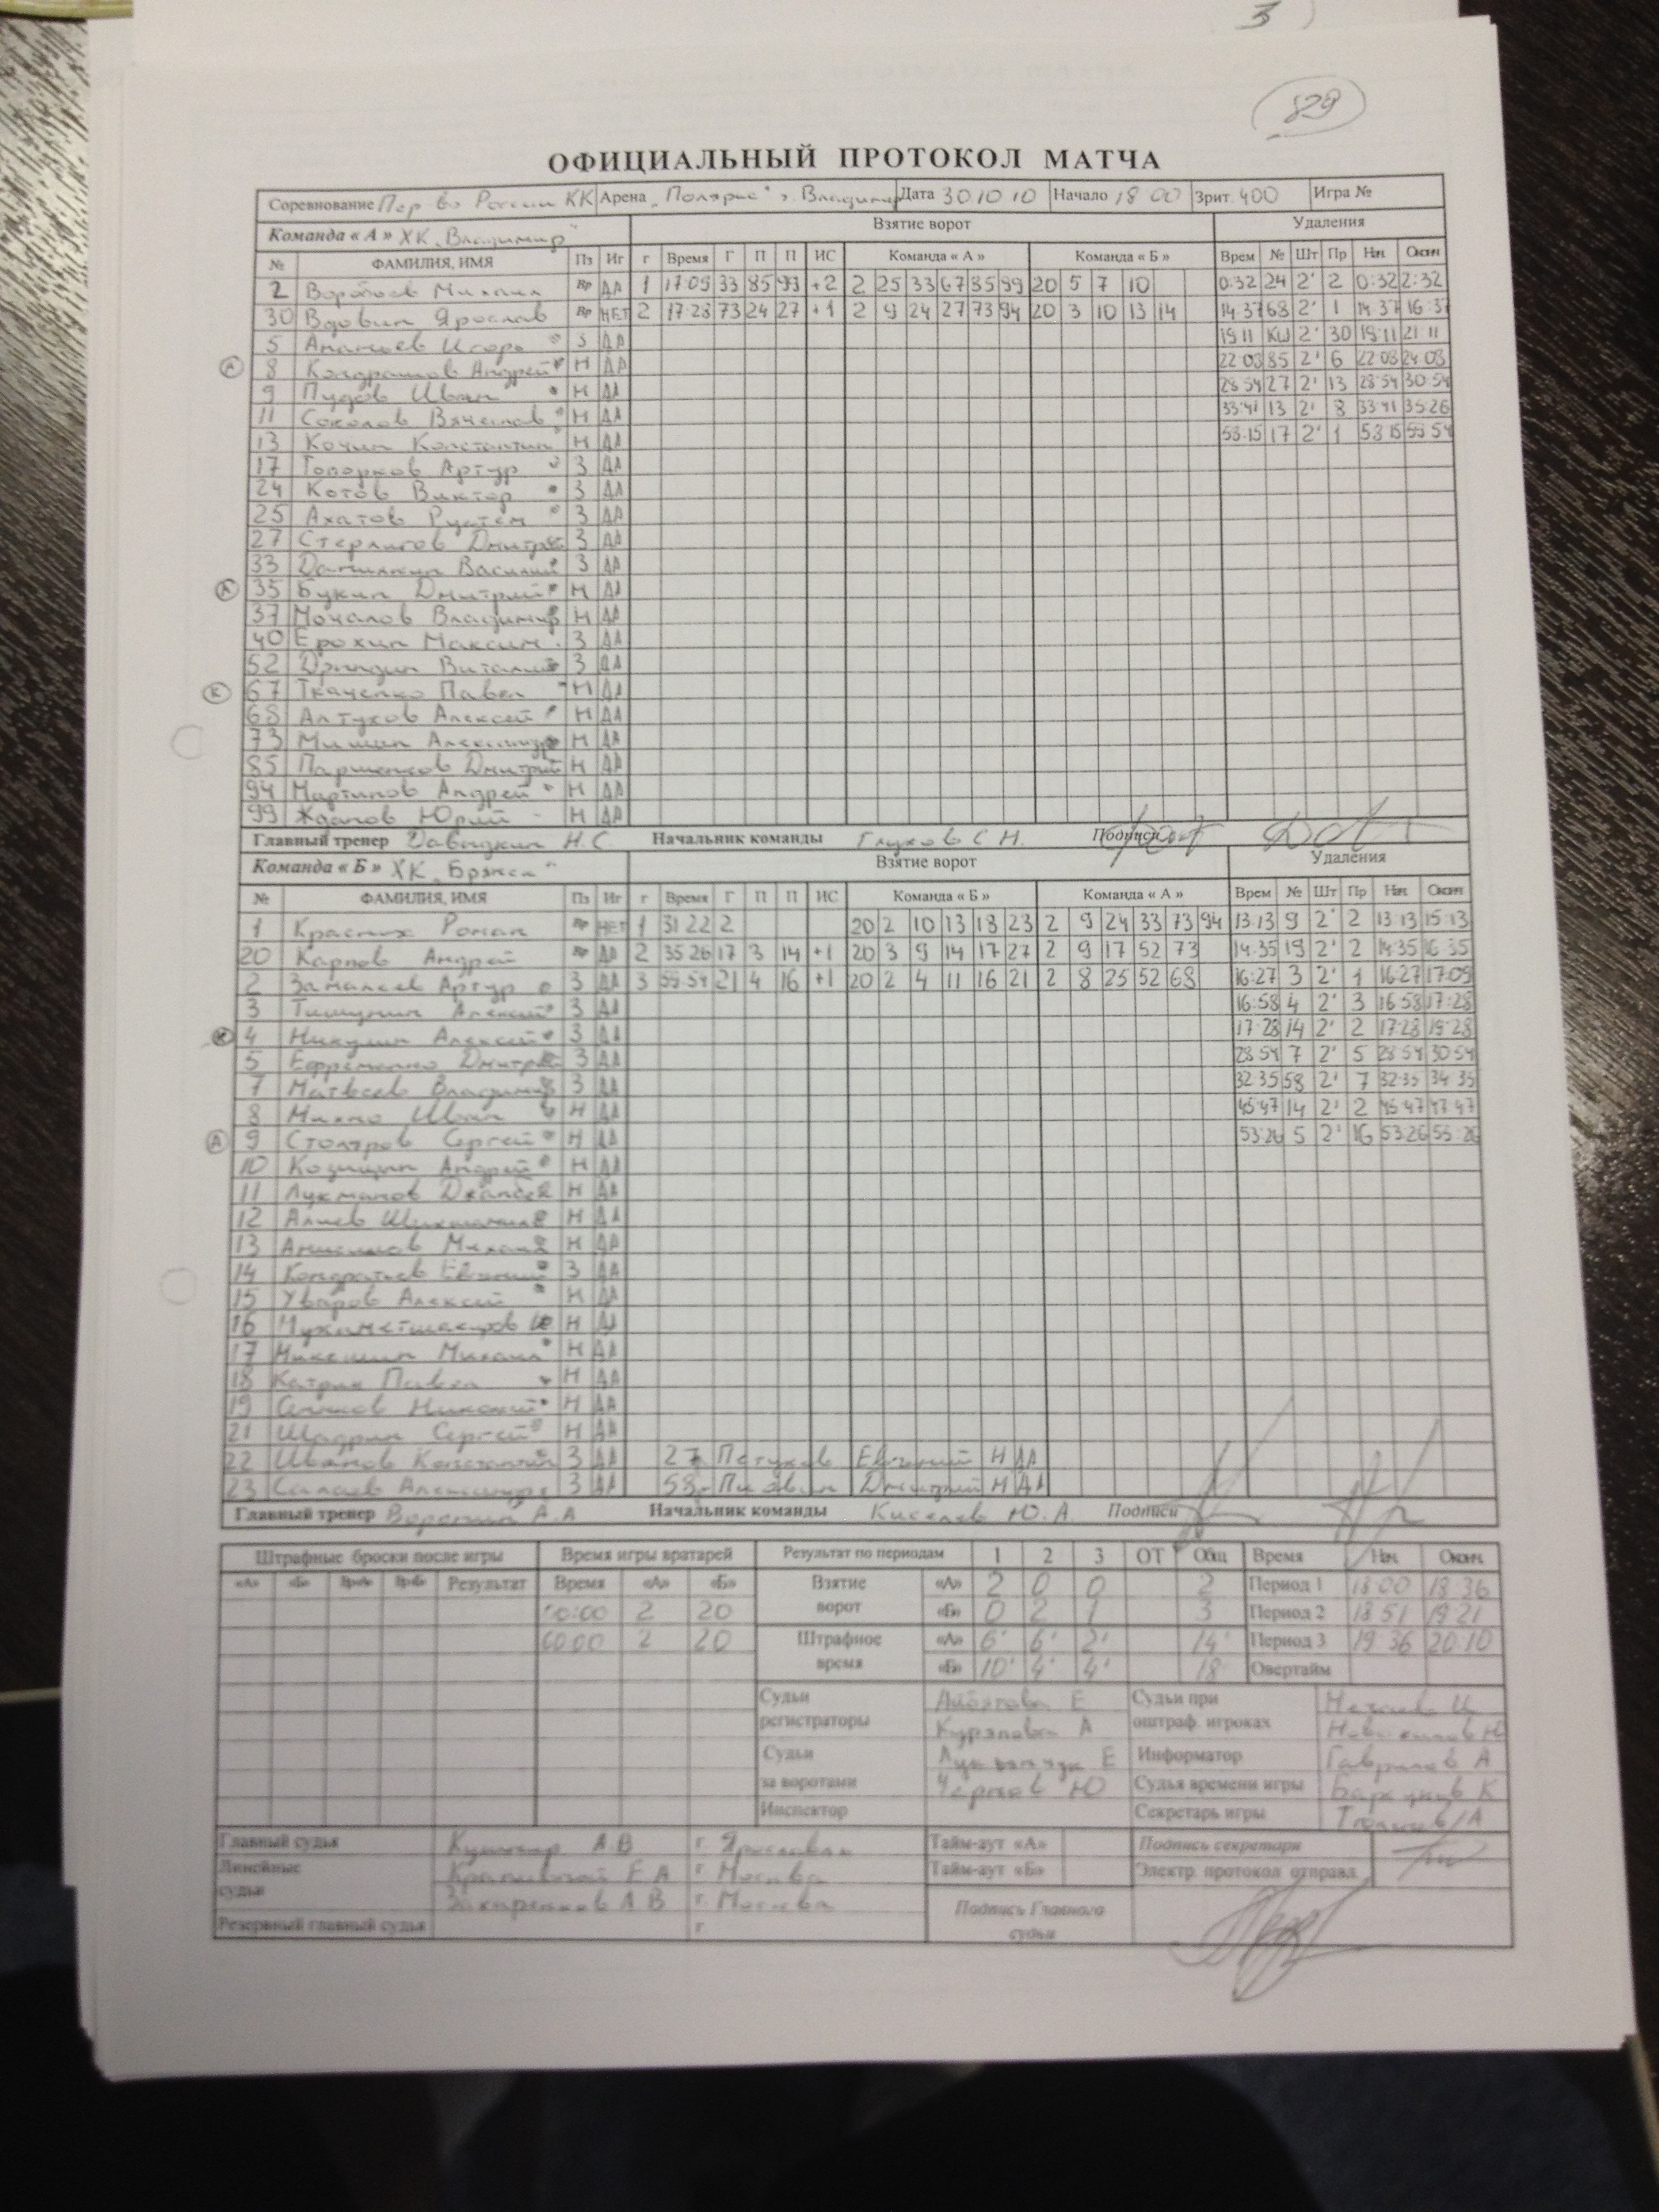 3
829
ОФИЦИАЛЬНЫЙ ПРОТОКОЛ МАТЧА
Соревнование Пер-во России КК Арена „Полярис" г. Владимир Дата 30.10.10 Начало 18 00 Зрит. 400 Игра №
Команда « А » ХК „Владимир" Взятие ворот Удаления
№ ФАМИЛИЯ, ИМЯ Пз Иг г Время Г П П ИС Команда « А » Команда « Б » Врем № Шт Пр Нач Оконч
2 Воробьев Михаил Вр ДА 1 17:09 33 85 99 +2 2 25 33 67 85 99 20 5 7 10 0:32 24 2' 2 0:32 2:32
30 Вдовин Ярослав Вр НЕТ 2 17:28 73 24 27 +1 2 9 24 27 73 94 20 3 10 13 14 14:37 68 2' 1 14:37 16:37
5 Ананьев Игорь З ДА 19:11 КШ 2' 30 19:11 21:11
А 8 Кондрашов Андрей Н ДА 22:03 85 2' 6 22:03 24:03
9 Пудов Иван Н ДА 28:54 27 2' 13 28:54 30:54
11 Соколов Вячеслав Н ДА 33:41 13 2' 8 33:41 35:26
13 Кочин Константин Н ДА 58:15 17 2' 1 58:15 59:54
17 Топорков Артур З ДА
24 Котов Виктор З ДА
25 Ахатов Рустем З ДА
27 Стерлигов Дмитрий З ДА
33 Данилкин Василий З ДА
А 35 Букин Дмитрий Н ДА
37 Мочалов Владимир Н ДА
40 Ерохин Максим З ДА
52 Дриндин Виталий З ДА
К 67 Ткаченко Павел Н ДА
68 Алтухов Алексей Н ДА
73 Мишин Александр Н ДА
85 Паршенков Дмитрий Н ДА
94 Мартынов Андрей Н ДА
99 Жданов Юрий Н ДА
Главный тренер Давыдкин Н.С. Начальник команды Глухов С Н. Подписи
Команда « Б » ХК „Брянск" Взятие ворот Удаления
№ ФАМИЛИЯ, ИМЯ Пз Иг г Время Г П П ИС Команда « Б » Команда « А » Врем № Шт Пр Нач Оконч
1 Красных Роман Вр НЕТ 1 31 22 2 20 2 10 13 18 23 2 9 24 33 73 94 13:13 9 2' 2 13:13 15:13
20 Карпов Андрей Вр ДА 2 35 26 17 3 14 +1 20 3 9 14 17 27 2 9 17 52 73 14:35 19 2' 2 14:35 16:35
2 Замалеев Артур З ДА 3 59:54 21 4 16 +1 20 2 4 11 16 21 2 8 25 52 68 16:27 3 2' 1 16:27 17:09
3 Тишунин Алексей З ДА 16:58 4 2' 3 16:58 17:28
К 4 Никулин Алексей З ДА 17:28 14 2' 2 17:28 19:28
5 Ефременко Дмитрий З ДА 28:54 7 2' 5 28:54 30:54
7 Матвеев Владимир З ДА 32:35 58 2' 7 32:35 34:35
8 Михно Иван Н ДА 45:47 14 2' 2 45:47 47:47
А 9 Столяров Сергей Н ДА 53:26 5 2' 16 53:26 55:26
10 Козицын Андрей Н ДА
11 Лукманов Н ДА
12 Алиев Н ДА
13 Анисимов Михаил Н ДА
14 Кондратьев Евгений З ДА
15 Уваров Алексей Н ДА
16 Н ДА
17 Никешин Михаил Н ДА
18 Катрин Павел Н ДА
19 Николай Н ДА
21 Щадрин Сергей Н ДА
22 Иванов Константин З ДА 27 Петухов Евгений Н ДА
23 Александр З ДА 58 Дмитрий Н ДА
Главный тренер Воронин А.А Начальник команды Киселев Ю.А Подписи
Штрафные броски после игры Время игры вратарей Результат по периодам 1 2 3 ОТ Общ Время Нач. Оконч.
«А» «Б» Вр«А» Вр«Б» Результат Время «А» «Б» Взятие ворот «А» 2 0 0 2 Период 1 18 00 18 36
00:00 2 20 «Б» 0 2 1 3 Период 2 18 51 19 21
60:00 2 20 Штрафное время «А» 6' 6' 2' 14' Период 3 19 36 20 10
«Б» 10' 4' 4' 18 Овертайм
Судьи регистраторы Е Судьи при оштраф. игроках
Курапова А
Судьи за воротами Е Информатор Гаврилов А
Чернов Ю Судья времени игры К
Инспектор Секретарь игры
Главный судья А.В г. Ярославль Тайм-аут «А» Подпись секретаря
Линейные судьи Е А г. Москва Тайм-аут «Б» Электр. протокол отправл.
А В г. Москва Подпись Главного судьи
Резервный главный судья г.